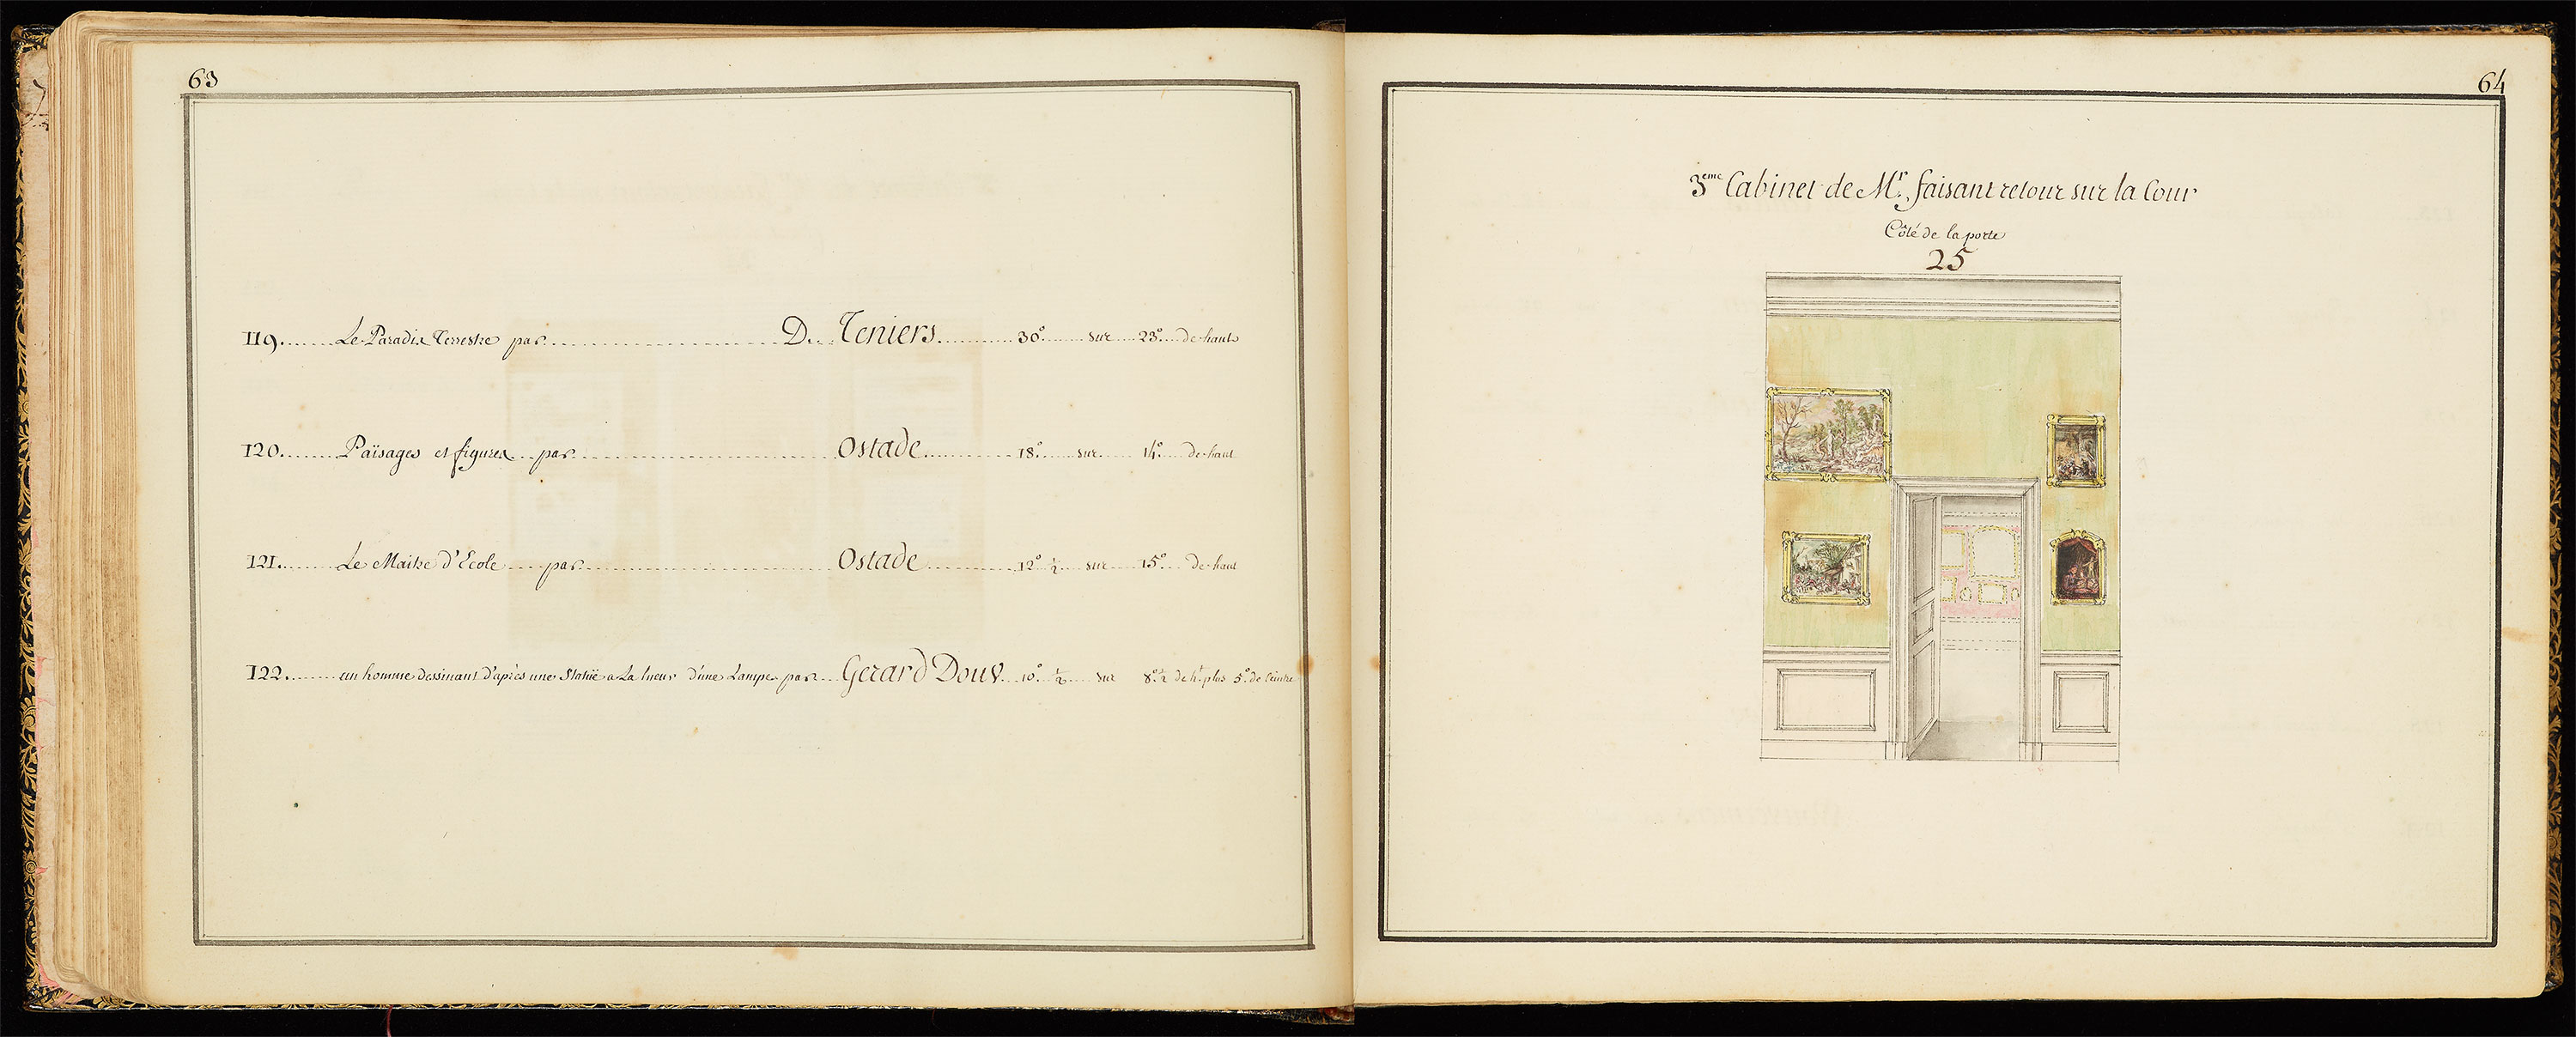 63
119. Le Paradis Terrestre par D. Teniers. 30° sur 23° de haut
120. Païsages et figures par Ostade 18° sur 14° de haut
121. Le Maitre d'Ecole par Ostade 12° ½ sur 15° de haut
122. un homme dessinant d'après une Statüe a La lueur d'une Lampe par Gerard Douv. 10° ½ sur 8° ½ de ht. plus 5° de Ceintre
64
3eme Cabinet de Mr. faisant retour sur la Cour
Côté de la porte
25